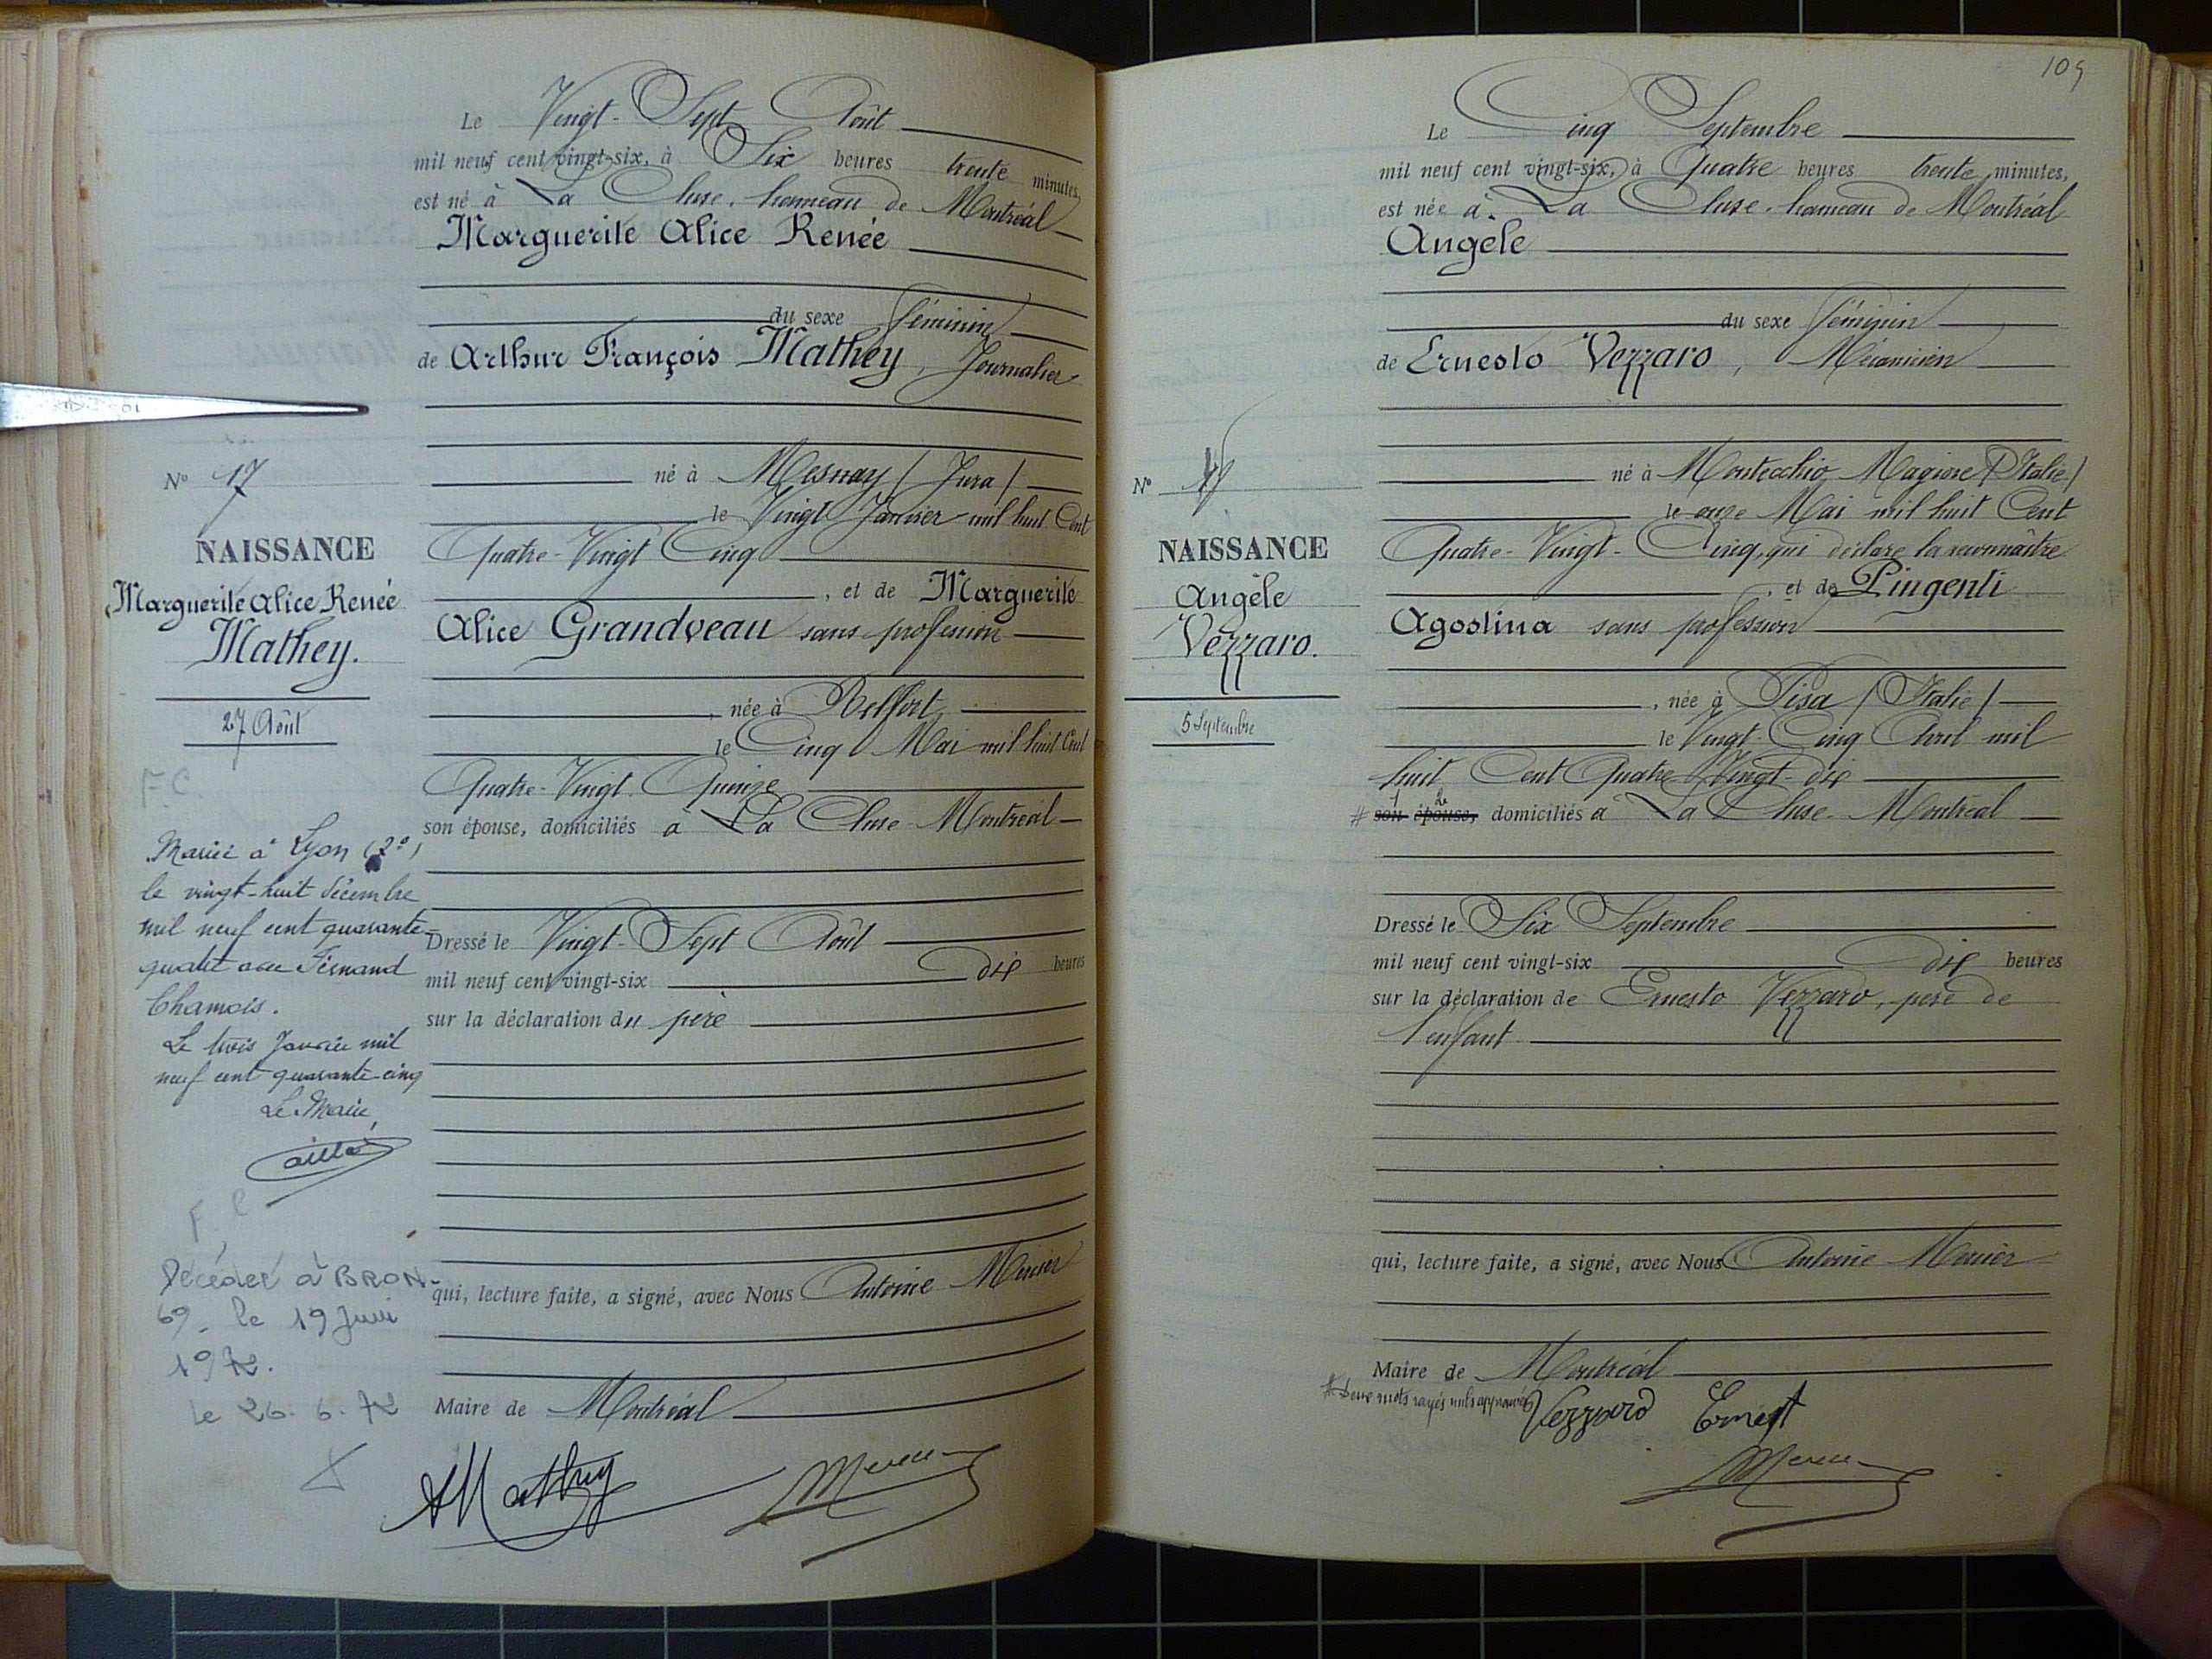 Le Vingt-Sept Août
mil neuf cent vingt-six, à Six heures trente minutes,
est né à La Cluse. hameau de Montréal
Marguerite Alice Renée
du sexe féminin
de Arthur François Mathey, Journalier
né à Mesnay (Jura)
le Vingt Janvier mil huit Cent
Quatre-Vingt Cinq
, et de Marguerite
Alice Grandveau sans profession
, née à Belfort
le Cinq Mai mil huit Cent
Quatre-Vingt Quinze
son épouse, domiciliés à La Cluse-Montréal
Dressé le Vingt-Sept Août
mil neuf cent vingt-six dix heures
sur la déclaration du père
qui, lecture faite, a signé, avec Nous Antoine Mercier
Maire de Montréal
AMathey
N° 17
NAISSANCE
Marguerite Alice Renée
Mathey.
27 Août
F.C.
Mariée à Lyon (2°)
le vingt-huit décembre
mil neuf cent quarante-
quatre avec Fernand
Chamois.
Le trois Janvier mil
neuf cent quarante-cinq
Le Maire,
F.C
Décédée à BRON-
69. le 19 Juin
1972.
le 26. 6. 72
109
Le Cinq Septembre
mil neuf cent vingt-six, à Quatre heures trente minutes,
est née à La Cluse. hameau de Montréal
Angèle
du sexe féminin
de Ernesto Vezzaro, Mécanicien
né à Montecchio Magiore (Italie)
le onze Mai mil huit Cent
Quatre-Vingt-Cinq, qui déclare la reconnaître
, et de Pingenti
Agostina sans profession
, née à Pisa (Italie)
le Vingt-Cinq Avril mil
huit Cent Quatre Vingt-dix
# son 1 épouse, 2 domiciliés à La Cluse-Montréal
Dressé le Six Septembre
mil neuf cent vingt-six dix heures
sur la déclaration de Ernesto Vezzaro, père de
l'enfant
qui, lecture faite, a signé, avec Nous Antoine Mercier
Maire de Montréal
# Deux mots rayés nuls approuvés
Vezzaro Ernest
N° 18
NAISSANCE
Angèle
Vezzaro.
5 Septembre